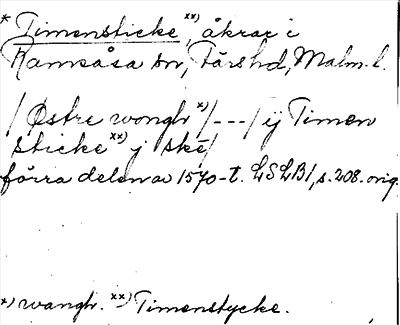 * Timensticke xx), åkrar i
Ramsåsa sn, Färs hd, Malm. l.
/ Østre wongh x)/---/ ij Timen
sticke xx) j ske/
förra delen av 1570-t. LSLB1, s. 208. orig.
x) wangh. xx) Timenstycke.